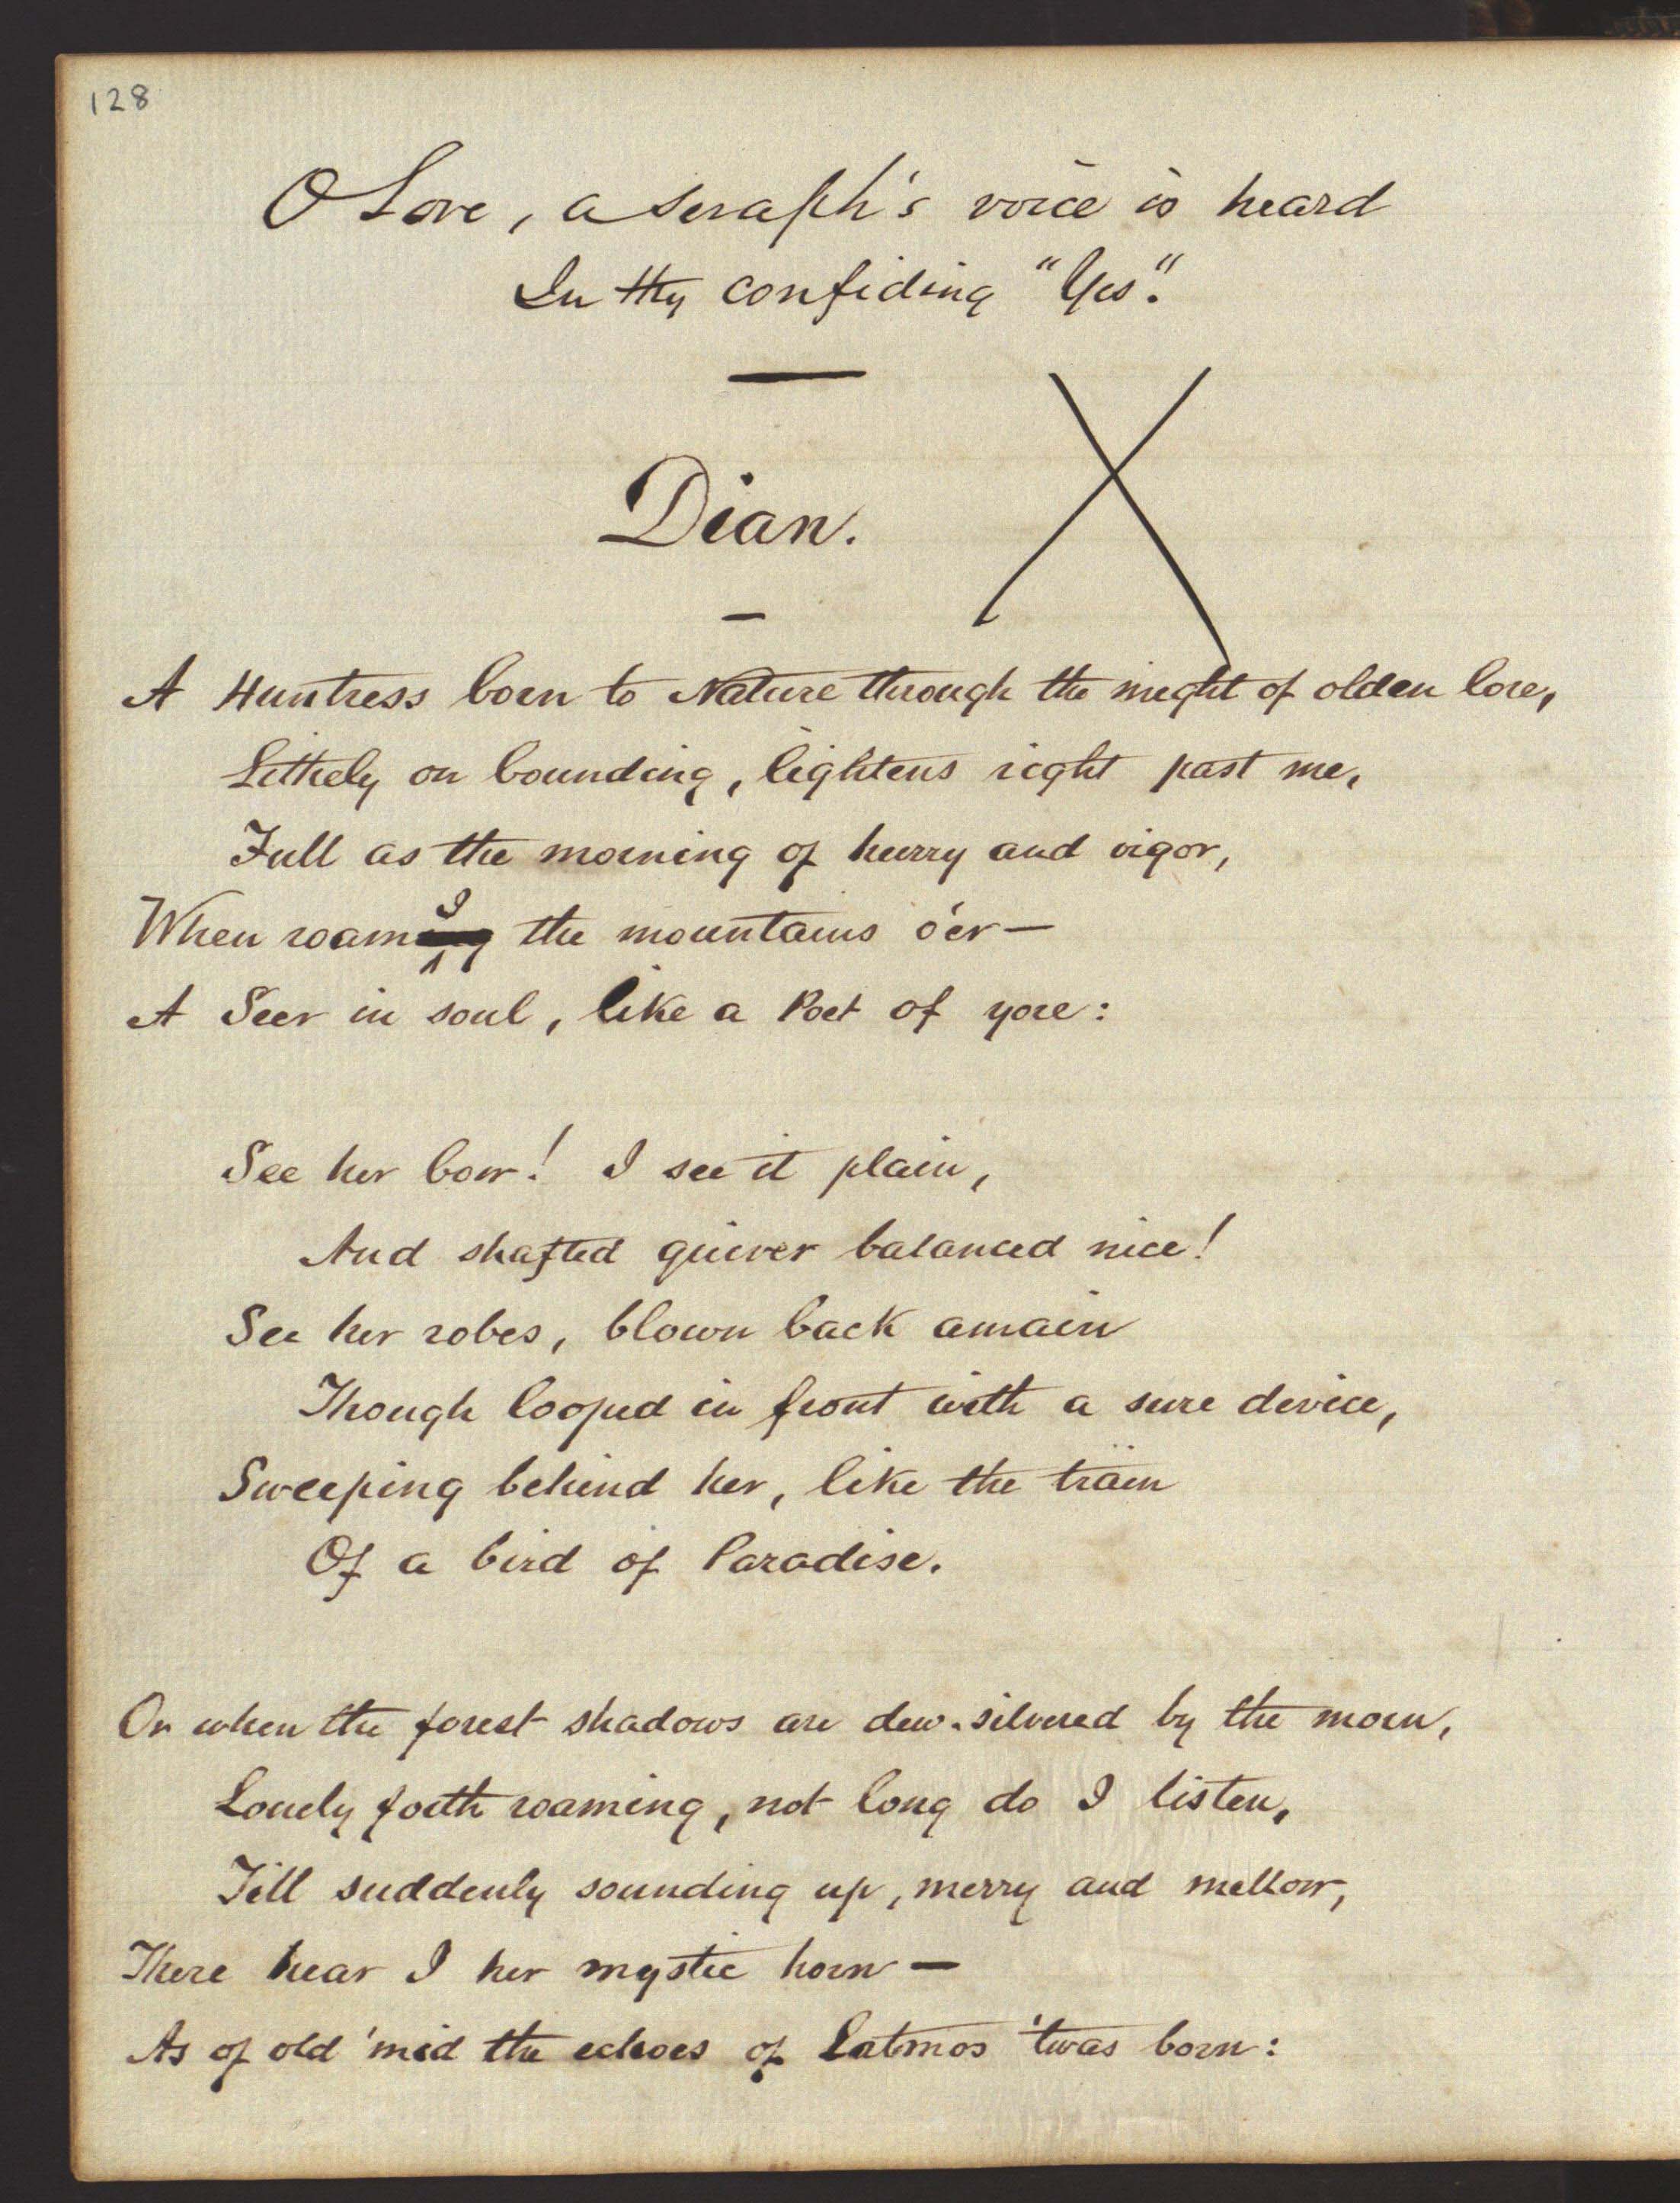 128
O Love, a seraph's voice is heard
In thy confiding "Yes".
Dian.
A Huntress born to Nature through the might of olden lore,
Lithely on bounding, lightens right past me,
Full as the morning of hurry and vigor,
When roam I the mountains o'er —
A Seer in soul, like a Poet of yore:
See her bow! I see it plain,
And shafted quiver balanced nice!
See her robes, blown back amain
Though looped in front with a sure device,
Sweeping behind her, like the train
Of a bird of Paradise.
Or when the forest shadows are dew-silvered by the morn,
Lonely forth roaming, not long do I listen,
Till suddenly sounding up, merry and mellow,
There hear I her mystic horn —
As of old 'mid the echoes of Latmos 'twas born: